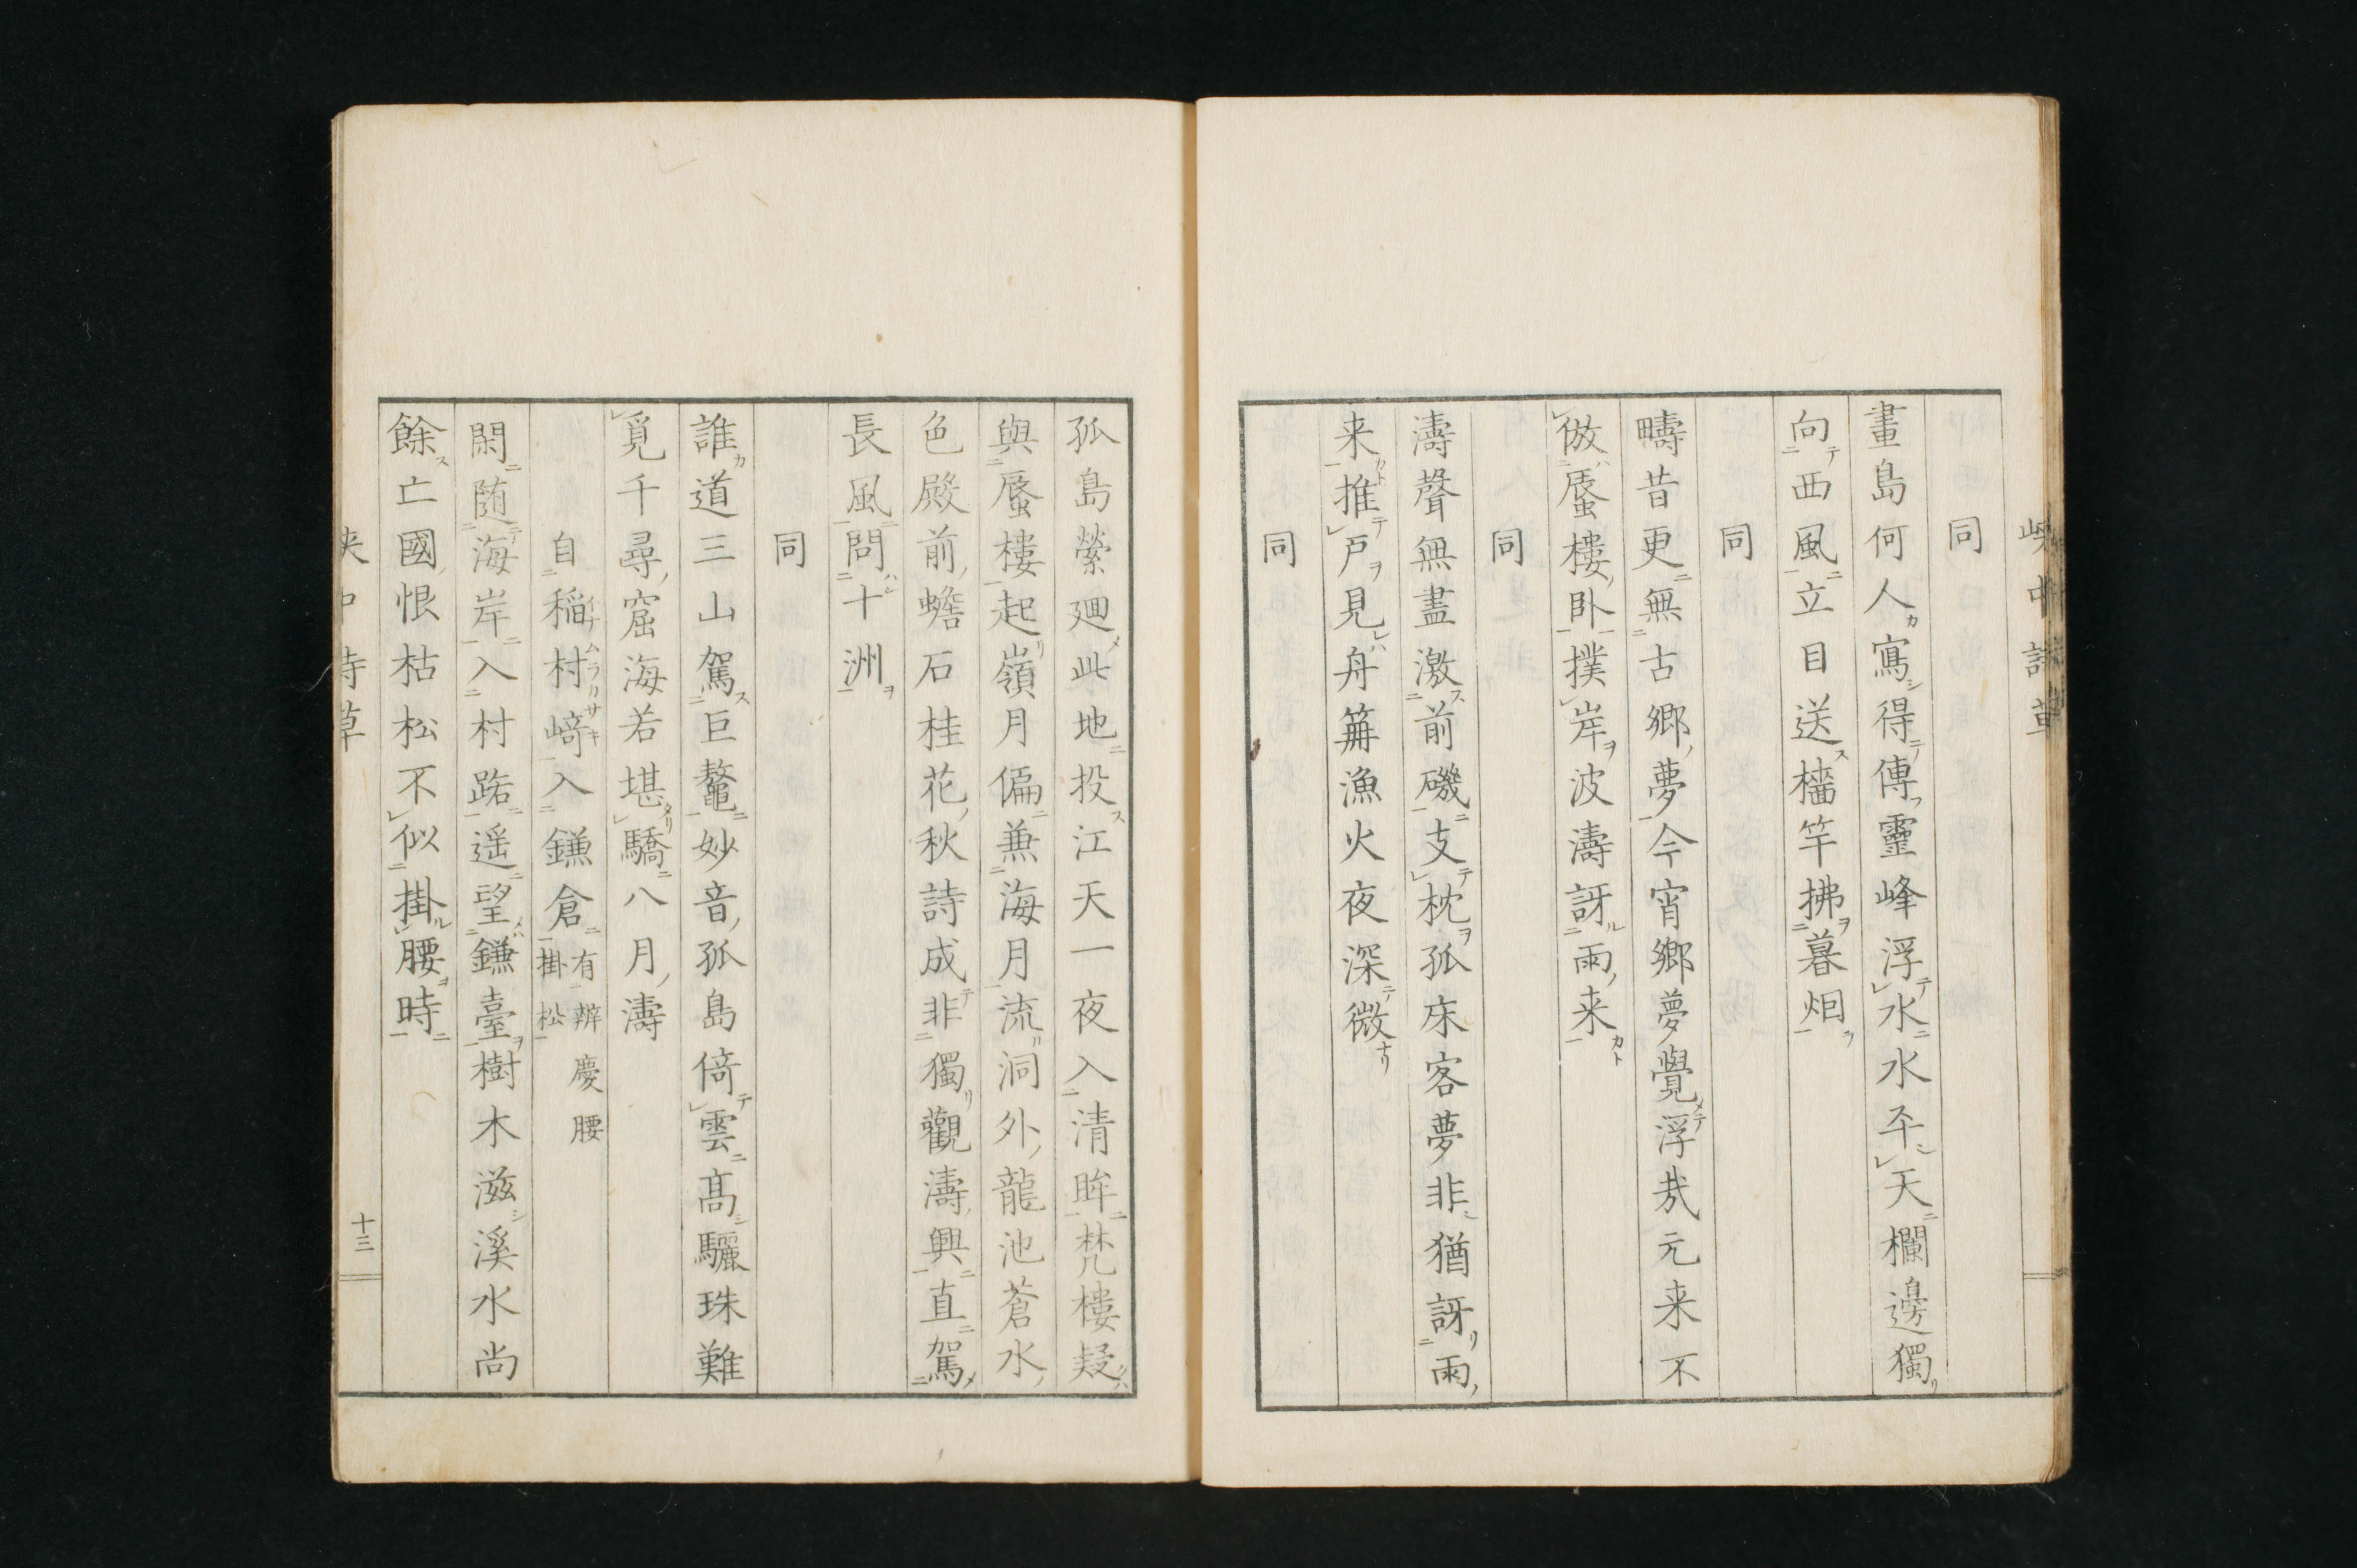 峽中詩草
同
畫島何人寫得傳靈峰浮水水平天欄邊獨
向西風立目送檣竿拂暮烟
同
疇昔更無古郷夢今宵郷夢覺浮哉元来不
倣蜃樓卧撲岸波濤訝雨来
同
濤聲無盡激前磯支枕孤床客夢非猶訝雨
来推戸見舟篝漁火夜深微
同
孤島縈廻此地投江天一夜入清眸梵樓疑
與蜃樓起嶺月偏兼海月流洞外龍池蒼水
色殿前蟾石桂花秋詩成非獨觀濤興直駕
長風問十洲
同
誰道三山駕巨鼇妙音孤島倚雲高驪珠難
覓千尋窟海若堪驕八月濤
自稲村﨑入鎌倉有辨慶腰掛松
閑随海岸入村踏遥望鎌臺樹木滋溪水尚
餘亡國恨枯松不似掛腰時
峽中詩草
十三